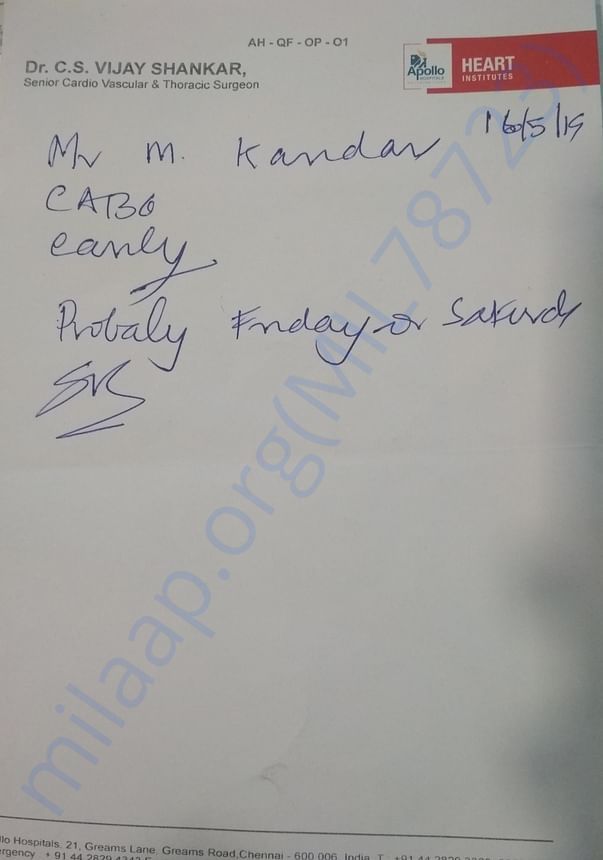 AH - QF - OP - O1
Dr. C.S. VIJAY SHANKAR,
Senior Cardio Vascular & Thoracic Surgeon
Apollo
HOSPITALS
HEART
INSTITUTES
16/5/19
Mr M. Kandan
CABG
early
Probaly Friday or Saturdy
milaap.org(MIL78723)
llo Hospitals, 21, Greams Lane, Greams Road,Chennai - 600 006, India. T : +91 44 2829
ergency : + 91 44 2829 4343